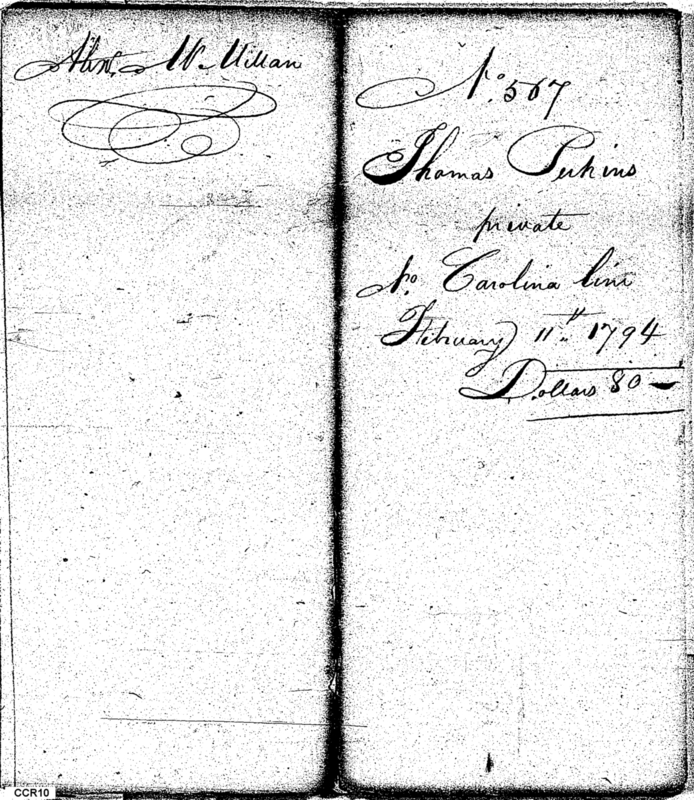 Alexr. McMillan
No. 567
Thomas Perkins
private
No. Carolina line
February 11th. 1794
Dollars 80
CCR10